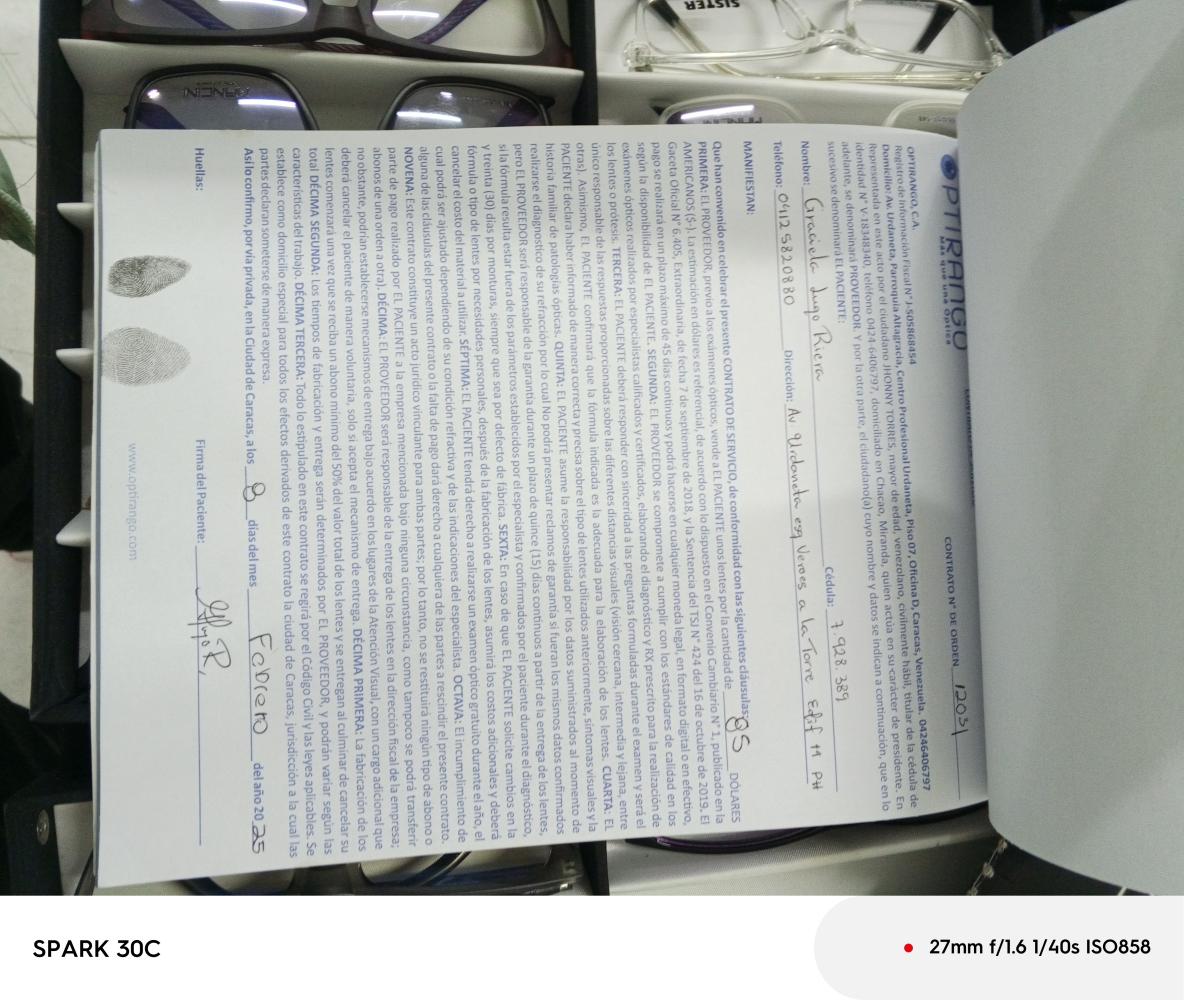 OPTIRANGO
Más que una Óptica
CONTRATO N° DE ORDEN 12031
OPTIRANGO, C.A.
Registro de Información Fiscal N° J-505868454
Domicilio: Av. Urdaneta, Parroquia Altagracia, Centro Profesional Urdaneta, Piso 07, Oficina D, Caracas, Venezuela. 04246406797
Representada en este acto por el ciudadano JHONNY TORRES, mayor de edad, venezolano, civilmente hábil, titular de la cédula de
identidad N° V-18348340, teléfono 0424-6406797, domiciliado en Chacao, Miranda, quien actúa en su carácter de presidente. En
adelante, se denominará PROVEEDOR. Y por la otra parte, el ciudadano(a) cuyo nombre y datos se indican a continuación, que en lo
sucesivo se denominará EL PACIENTE:
Nombre: Graciela Lugo Riera Cédula: 7.928.389
Teléfono: 0412 5820880 Dirección: Av Urdaneta esq Veroes a la Torre Edif 11 PH
MANIFIESTAN:
Que han convenido en celebrar el presente CONTRATO DE SERVICIO, de conformidad con las siguientes cláusulas:
PRIMERA: EL PROVEEDOR, previo a los exámenes ópticos, vende a EL PACIENTE unos lentes por la cantidad de 95 DÓLARES
AMERICANOS ($-). La estimación en dólares es referencial, de acuerdo con lo dispuesto en el Convenio Cambiario N° 1, publicado en la
Gaceta Oficial N° 6.405, Extraordinaria, de fecha 7 de septiembre de 2018, y la Sentencia del TSJ N° 424 del 16 de octubre de 2019. El
pago se realizará en un plazo máximo de 45 días continuos y podrá hacerse en cualquier moneda legal, en formato digital o en efectivo,
según la disponibilidad de EL PACIENTE. SEGUNDA: EL PROVEEDOR se compromete a cumplir con los estándares de calidad en los
exámenes ópticos realizados por especialistas calificados y certificados, elaborando el diagnóstico y RX prescrito para la realización de
los lentes o prótesis. TERCERA: EL PACIENTE deberá responder con sinceridad a las preguntas formuladas durante el examen y será el
único responsable de las respuestas proporcionadas sobre las diferentes distancias visuales (visión cercana, intermedia y lejana, entre
otras). Asimismo, EL PACIENTE confirmará que la fórmula indicada es la adecuada para la elaboración de los lentes. CUARTA: EL
PACIENTE declara haber informado de manera correcta y precisa sobre el tipo de lentes utilizados anteriormente, síntomas visuales y la
historia familiar de patologías ópticas. QUINTA: EL PACIENTE asume la responsabilidad por los datos suministrados al momento de
realizarse el diagnostico de su refracción por lo cual No podrá presentar reclamos de garantía si fueran los mismos datos confirmados
pero EL PROVEEDOR será responsable de la garantía durante un plazo de quince (15) días continuos a partir de la entrega de los lentes,
si la fórmula resulta estar fuera de los parámetros establecidos por el especialista y confirmados por el paciente durante el diagnóstico,
y treinta (30) días por monturas, siempre que sea por defecto de fábrica. SEXTA: En caso de que EL PACIENTE solicite cambios en la
fórmula o tipo de lentes por necesidades personales, después de la fabricación de los lentes, asumirá los costos adicionales y deberá
cancelar el costo del material a utilizar. SÉPTIMA: EL PACIENTE tendrá derecho a realizarse un examen óptico gratuito durante el año, el
cual podrá ser ajustado dependiendo de su condición refractiva y de las indicaciones del especialista. OCTAVA: El incumplimiento de
alguna de las cláusulas del presente contrato o la falta de pago dará derecho a cualquiera de las partes a rescindir el presente contrato.
NOVENA: Este contrato constituye un acto jurídico vinculante para ambas partes; por lo tanto, no se restituirá ningún tipo de abono o
parte de pago realizado por EL PACIENTE a la empresa mencionada bajo ninguna circunstancia, como tampoco se podrá transferir
abonos de una orden a otra). DÉCIMA: EL PROVEEDOR será responsable de la entrega de los lentes en la dirección fiscal de la empresa;
no obstante, podrían establecerse mecanismos de entrega bajo acuerdo en los lugares de la Atención Visual, con un cargo adicional que
deberá cancelar el paciente de manera voluntaria, solo si acepta el mecanismo de entrega. DÉCIMA PRIMERA: La fabricación de los
lentes comenzará una vez que se reciba un abono mínimo del 50% del valor total de los lentes y se entregan al culminar de cancelar su
total DÉCIMA SEGUNDA: Los tiempos de fabricación y entrega serán determinados por EL PROVEEDOR, y podrán variar según las
características del trabajo. DÉCIMA TERCERA: Todo lo estipulado en este contrato se regirá por el Código Civil y las leyes aplicables. Se
establece como domicilio especial para todos los efectos derivados de este contrato la ciudad de Caracas, jurisdicción a la cual las
partes declaran someterse de manera expresa.
Así lo confirmo, por vía privada, en la Ciudad de Caracas, a los 8 días del mes Febrero del año 2025
Huellas: Firma del Paciente:
www.optirango.com
SISTER
SPARK 30C
27mm f/1.6 1/40s ISO858